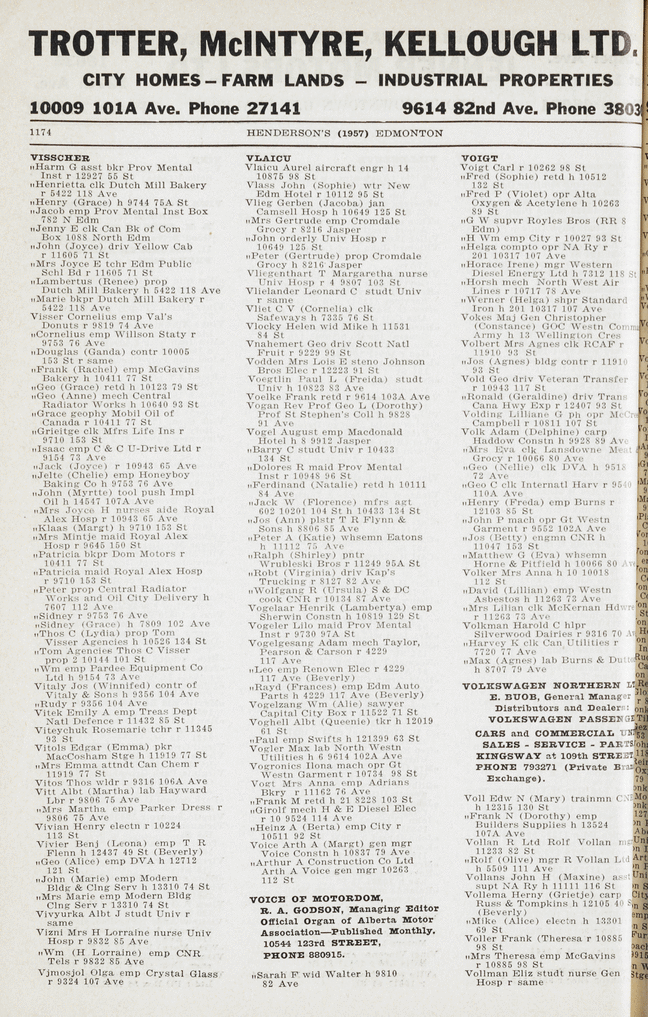 TROTTER, McINTYRE, KELLOUGH LTD.
CITY HOMES – FARM LANDS – INDUSTRIAL PROPERTIES
10009 101A Ave. Phone 27141 9614 82nd Ave. Phone 3803
1174 HENDERSON'S (1957) EDMONTON
VISSCHER
„Harm G asst bkr Prov Mental
Inst r 12927 55 St
„Henrietta clk Dutch Mill Bakery
r 5422 118 Ave
„Henry (Grace) h 9744 75A St
„Jacob emp Prov Mental Inst Box
782 N Edm
„Jenny E clk Can Bk of Com
Box 1088 North Edm
„John (Joyce) driv Yellow Cab
r 11605 71 St
„Mrs Joyce E tchr Edm Public
Schl Bd r 11605 71 St
„Lambertus (Renee) prop
Dutch Mill Bakery h 5422 118 Ave
„Marie bkpr Dutch Mill Bakery r
5422 118 Ave
Visser Cornelius emp Val's
Donuts r 9819 74 Ave
„Cornelius emp Willson Staty r
9753 76 Ave
„Douglas (Ganda) contr 10005
153 St r same
„Frank (Rachel) emp McGavins
Bakery h 10411 77 St
„Geo (Grace) retd h 10123 79 St
„Geo (Anne) mech Central
Radiator Works h 10640 93 St
„Grace geophy Mobil Oil of
Canada r 10411 77 St
„Grieitge clk Mfrs Life Ins r
9710 153 St
„Isaac emp C & C U-Drive Ltd r
9154 73 Ave
„Jack (Joyce) r 10943 65 Ave
„Jelte (Chelie) emp Honeyboy
Baking Co h 9753 76 Ave
„John (Myrtte) tool push Impl
Oil h 14547 107A Ave
„Mrs Joyce H nurses aide Royal
Alex Hosp r 10943 65 Ave
„Klaas (Margt) h 9710 153 St
„Mrs Mintje maid Royal Alex
Hosp r 9645 150 St
„Patricia bkpr Dom Motors r
10411 77 St
„Patricia maid Royal Alex Hosp
r 9710 153 St
„Peter prop Central Radiator
Works and Oil City Delivery h
7607 112 Ave
„Sidney r 9753 76 Ave
„Sidney (Grace) h 7809 102 Ave
„Thos C (Lydia) prop Tom
Visser Agencies h 10526 134 St
„Tom Agencies Thos C Visser
prop 2 10144 101 St
„Wm emp Pardee Equipment Co
Ltd h 9154 73 Ave
Vitaly Jos (Winnifed) contr of
Vitaly & Sons h 9356 104 Ave
„Rudy r 9356 104 Ave
Vitek Emily A emp Treas Dept
Natl Defence r 11432 85 St
Viteychuk Rosemarie tchr r 11345
93 St
Vitols Edgar (Emma) pkr
MacCosham Stge h 11919 77 St
„Mrs Emma attndt Can Chem r
11919 77 St
Vitos Thos widr r 9316 106A Ave
Vitt Albt (Martha) lab Hayward
Lbr r 9806 75 Ave
„Mrs Martha emp Parker Dress r
9806 75 Ave
Vivian Henry electn r 10224
113 St
Vivier Benj (Leona) emp T R
Flenn h 12437 49 St (Beverly)
„Geo (Alice) emp DVA h 12712
121 St
„John (Marie) emp Modern
Bldg & Clng Serv h 13310 74 St
„Mrs Marie emp Modern Bldg
Clng Serv r 13310 74 St
Vivyurka Albt J studt Univ r
same
Vizni Mrs H Lorraine nurse Univ
Hosp r 9832 85 Ave
„Wm (H Lorraine) emp CNR
Tels r 9832 85 Ave
Vjmosjol Olga emp Crystal Glass
r 9324 107 Ave
VLAICU
Vlaicu Aurel aircraft engr h 14
10875 98 St
Vlass John (Sophie) wtr New
Edm Hotel r 10112 95 St
Vlieg Gerben (Jacoba) jan
Camsell Hosp h 10649 125 St
„Mrs Gertrude emp Cromdale
Grocy r 8216 Jasper
„John orderly Univ Hosp r
10649 125 St
„Peter (Gertrude) prop Cromdale
Grocy h 8216 Jasper
Vliegenthart T Margaretta nurse
Univ Hosp r 4 9807 103 St
Vlielander Leonard C studt Univ
r same
Vliet C V (Cornelia) clk
Safeways h 7335 76 St
Vlocky Helen wid Mike h 11531
84 St
Vnahemert Geo driv Scott Natl
Fruit r 9229 99 St
Vodden Mrs Lois E steno Johnson
Bros Elec r 12223 91 St
Voegtlin Paul L (Freida) studt
Univ h 10823 83 Ave
Voelke Frank retd r 9614 103A Ave
Vogan Rev Prof Geo L (Dorothy)
Prof St Stephen's Coll h 9828
91 Ave
Vogel August emp Macdonald
Hotel h 8 9912 Jasper
„Barry C studt Univ r 10433
134 St
„Dolores R maid Prov Mental
Inst r 10948 96 St
„Ferdinand (Natalie) retd h 10111
84 Ave
„Jack W (Florence) mfrs agt
602 10201 104 St h 10433 134 St
„Jos (Ann) plstr T R Flynn &
Sons h 8806 85 Ave
„Peter A (Katie) whsemn Eatons
h 11112 75 Ave
„Ralph (Shirley) pntr
Wrubleski Bros r 11249 95A St
„Robt (Virginia) driv Kap's
Trucking r 8127 82 Ave
„Wolfgang R (Ursula) S & DC
cook CNR r 10134 87 Ave
Vogelaar Henrik (Lambertya) emp
Sherwin Constn h 10819 129 St
Vogeler Lilo maid Prov Mental
Inst r 9730 97A St
Vogelgesang Adam mech Taylor,
Pearson & Carson r 4229
117 Ave
„Leo emp Renown Elec r 4229
117 Ave (Beverly)
„Rayd (Frances) emp Edm Auto
Parts h 4229 117 Ave (Beverly)
Vogelzang Wm (Alie) sawyer
Capital City Box r 11522 71 St
Voghell Albt (Queenie) tkr h 12019
61 St
„Paul emp Swifts h 121399 63 St
Vogler Max lab North Westn
Utilities h 6 9614 102A Ave
Vogronics Ilona mach opr Gt
Westn Garment r 10734 98 St
Vogt Mrs Anna emp Adrians
Bkry r 11162 76 Ave
„Frank M retd h 21 8228 103 St
„Girolf mech H & E Diesel Elec
r 10 9524 114 Ave
„Heinz A (Berta) emp City r
10511 92 St
Voice Arth A (Margt) gen mgr
Voice Constn h 10837 79 Ave
„Arthur A Construction Co Ltd
Arth A Voice gen mgr 10263
112 St
VOICE OF MOTORDOM,
R. A. GODSON, Managing Editor
Official Organ of Alberta Motor
Association—Published Monthly.
10544 123rd STREET,
PHONE 880915.
„Sarah F wid Walter h 9810
82 Ave
VOIGT
Voigt Carl r 10262 98 St
„Fred (Sophie) retd h 10512
132 St
„Fred P (Violet) opr Alta
Oxygen & Acetylene h 10263
89 St
„G W supvr Royles Bros (RR 8
Edm)
„H Wm emp City r 10027 93 St
„Helga compto opr NA Ry r
201 10317 107 Ave
„Horace Irene) mgr Western
Diesel Energy Ltd h 7312 118 St
„Horsh mech North West Air
Lines r 10717 78 Ave
„Werner (Helga) shpr Standard
Iron h 201 10317 107 Ave
Vokes Maj Gen Christopher
(Constance) GOC Westn Comm
Army h 13 Wellington Cres
Volbert Mrs Agnes clk RCAF r
11910 93 St
„Jos (Agnes) bldg contr r 11910
93 St
Vold Geo driv Veteran Transfer
r 10943 117 St
„Ronald (Geraldine) driv Trans
Cana Hwy Exp r 12407 93 St
Volding Lilliane G pbj opr McCr
Campbell r 10811 107 St
Volk Adam (Delphine) carp
Haddow Constn h 9928 89 Ave
„Mrs Eva clk Lansdowne Meat
Grocy r 10066 80 Ave
„Geo (Nellie) clk DVA h 9518
72 Ave
„Geo C clk Internatl Harv r 9540
110A Ave
„Henry (Freda) emp Burns r
12103 85 St
„John P mach opr Gt Westn
Garment r 9552 102A Ave
„Jos (Betty) engmn CNR h
11047 153 St
„Matthew G (Eva) whsemn
Horne & Pitfield h 10066 80 Av
Volker Mrs Anna h 10 10018
112 St
„David (Lillian) emp Westn
Asbestos h 11263 73 Ave
„Mrs Lilian clk McKernan Hdwre
r 11263 73 Ave
Volkman Harold C hlpr
Silverwood Dairies r 9316 70 Av
„Harvey K clk Can Utilities r
7720 77 Ave
„Max (Agnes) lab Burns & Dutto
h 8707 79 Ave
VOLKSWAGEN NORTHERN LT
E. BUOB, General Manager
Distributors and Dealers
VOLKSWAGEN PASSENG
CARS and COMMERCIAL UN
SALES - SERVICE - PARTS
KINGSWAY at 109th STREET
PHONE 793271 (Private Bra
Exchange).
Voll Edw N (Mary) trainmn CN
h 12315 130 St
„Frank N (Dorothy) emp
Builders Supplies h 13524
107A Ave
Vollan R Ltd Rolf Vollan mg
11233 82 St
„Rolf (Olive) mgr R Vollan Ltd
h 5509 111 Ave
Vollans John H (Maxine) asst
supt NA Ry h 11111 116 St
Vollema Herny (Grietje) carp
Russ & Tompkins h 12105 40 S
(Beverly)
„Mike (Alice) electn h 13301
69 St
Voller Frank (Theresa r 10885
98 St
„Mrs Theresa emp McGavins
r 10885 98 St
Vollman Eliz studt nurse Gen
Hosp r same